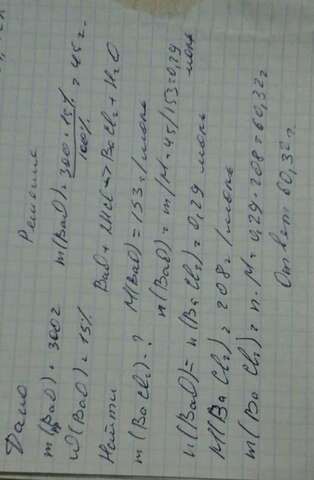 Дано
m(BaO) = 300г
ω(BaO) = 15%
Найти
m(BaCl₂)-?
Решение
m(BaO) = 300·15% / 100% = 45г.
BaO + HCl → BaCl₂ + H₂O
M(BaO) = 153г/моль
n(BaO) = m/M = 45/153 = 0,29 моль
n(BaO) = n(BaCl₂) = 0,29 моль
M(BaCl₂) = 208г/моль
m(BaCl₂) = n·M = 0,29·208 = 60,32г
Ответ 60,32г.